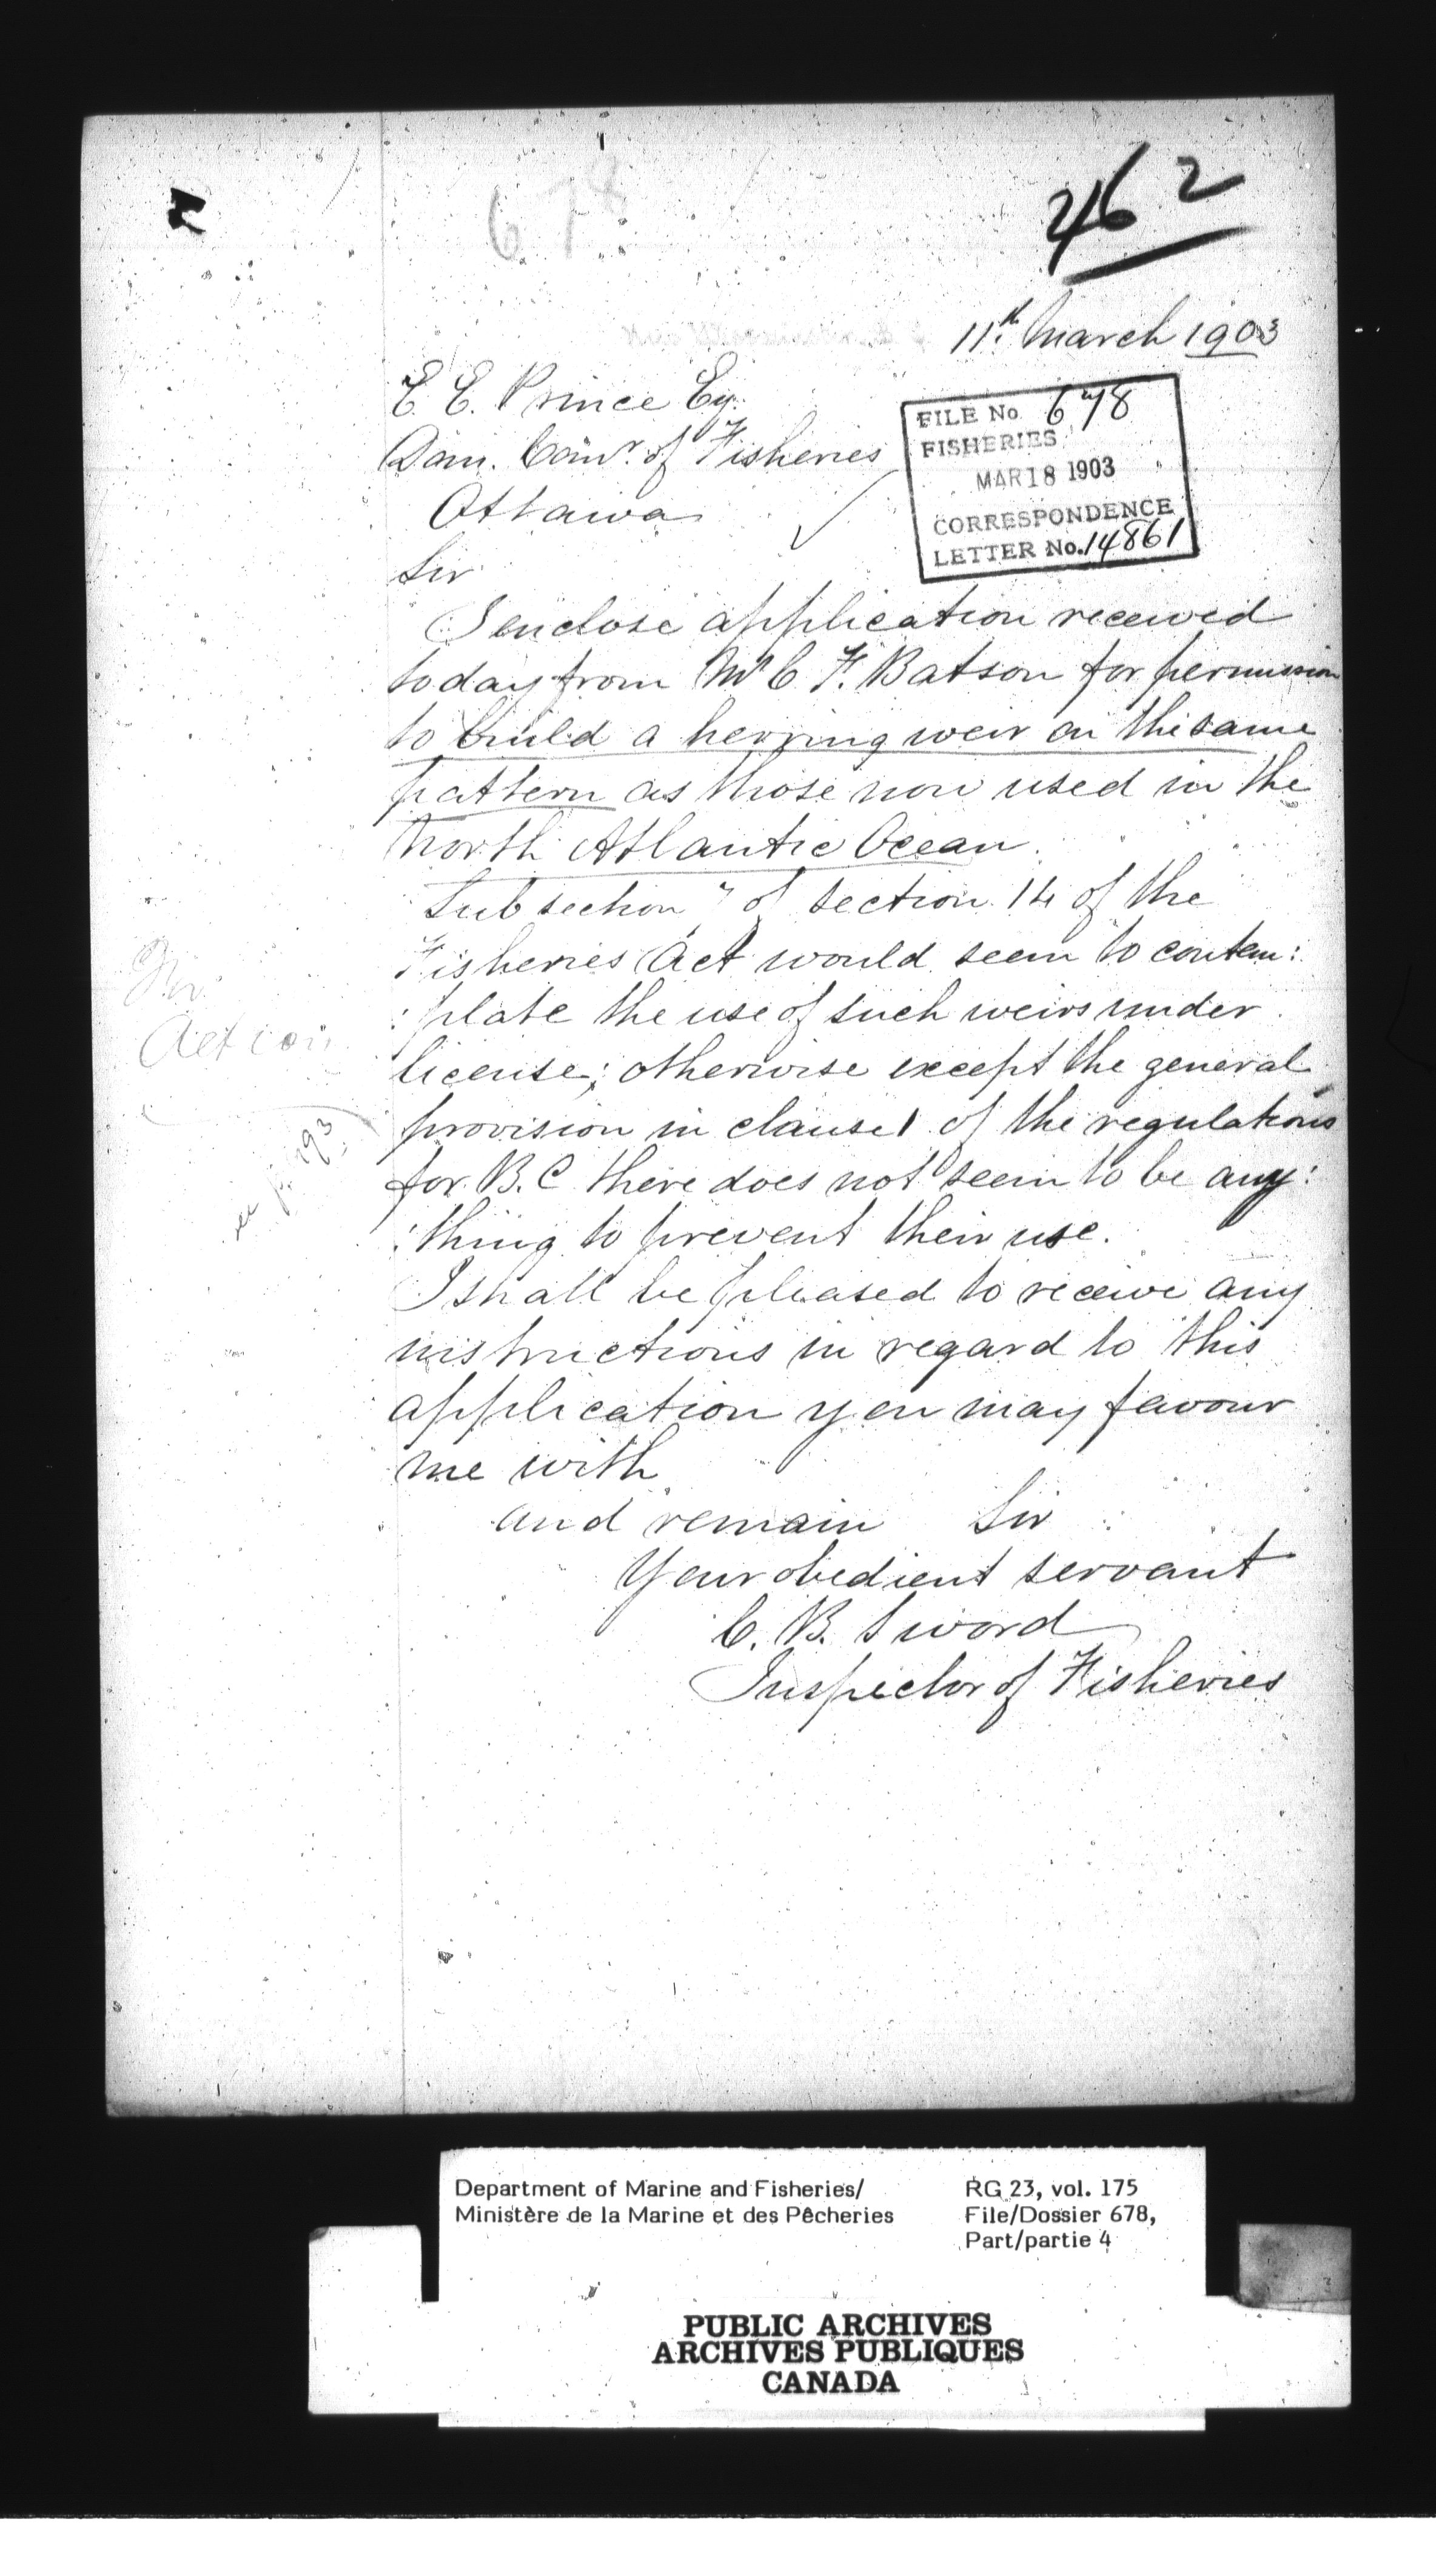 678
462
11th March 1903
E. E. Prince Esq.
Dom. Comr. of Fisheries
Ottawa
FILE No 678
FISHERIES
MAR 18 1903
CORRESPONDENCE
LETTER No. 14861
Sir
I enclose application received
today from Mr C F. Batson for permission
to build a herring weir on the same
pattern as those now used in the
North Atlantic Ocean.
Subsection 7 of section 14 of the
Fisheries Act would seem to contem:
:plate the use of such weirs under
license; otherwise except the general
provision in clause 1 of the regulations
for B.C there does not seem to be any:
:thing to prevent their use.
I shall be pleased to receive any
instructions in regard to this
application you may favour
me with
and remain Sir
Your obedient servant
C. B. Sword
Inspector of Fisheries
Action
Department of Marine and Fisheries/
Ministère de la Marine et des Pêcheries
RG 23, vol. 175
File/Dossier 678,
Part/partie 4
PUBLIC ARCHIVES
ARCHIVES PUBLIQUES
CANADA